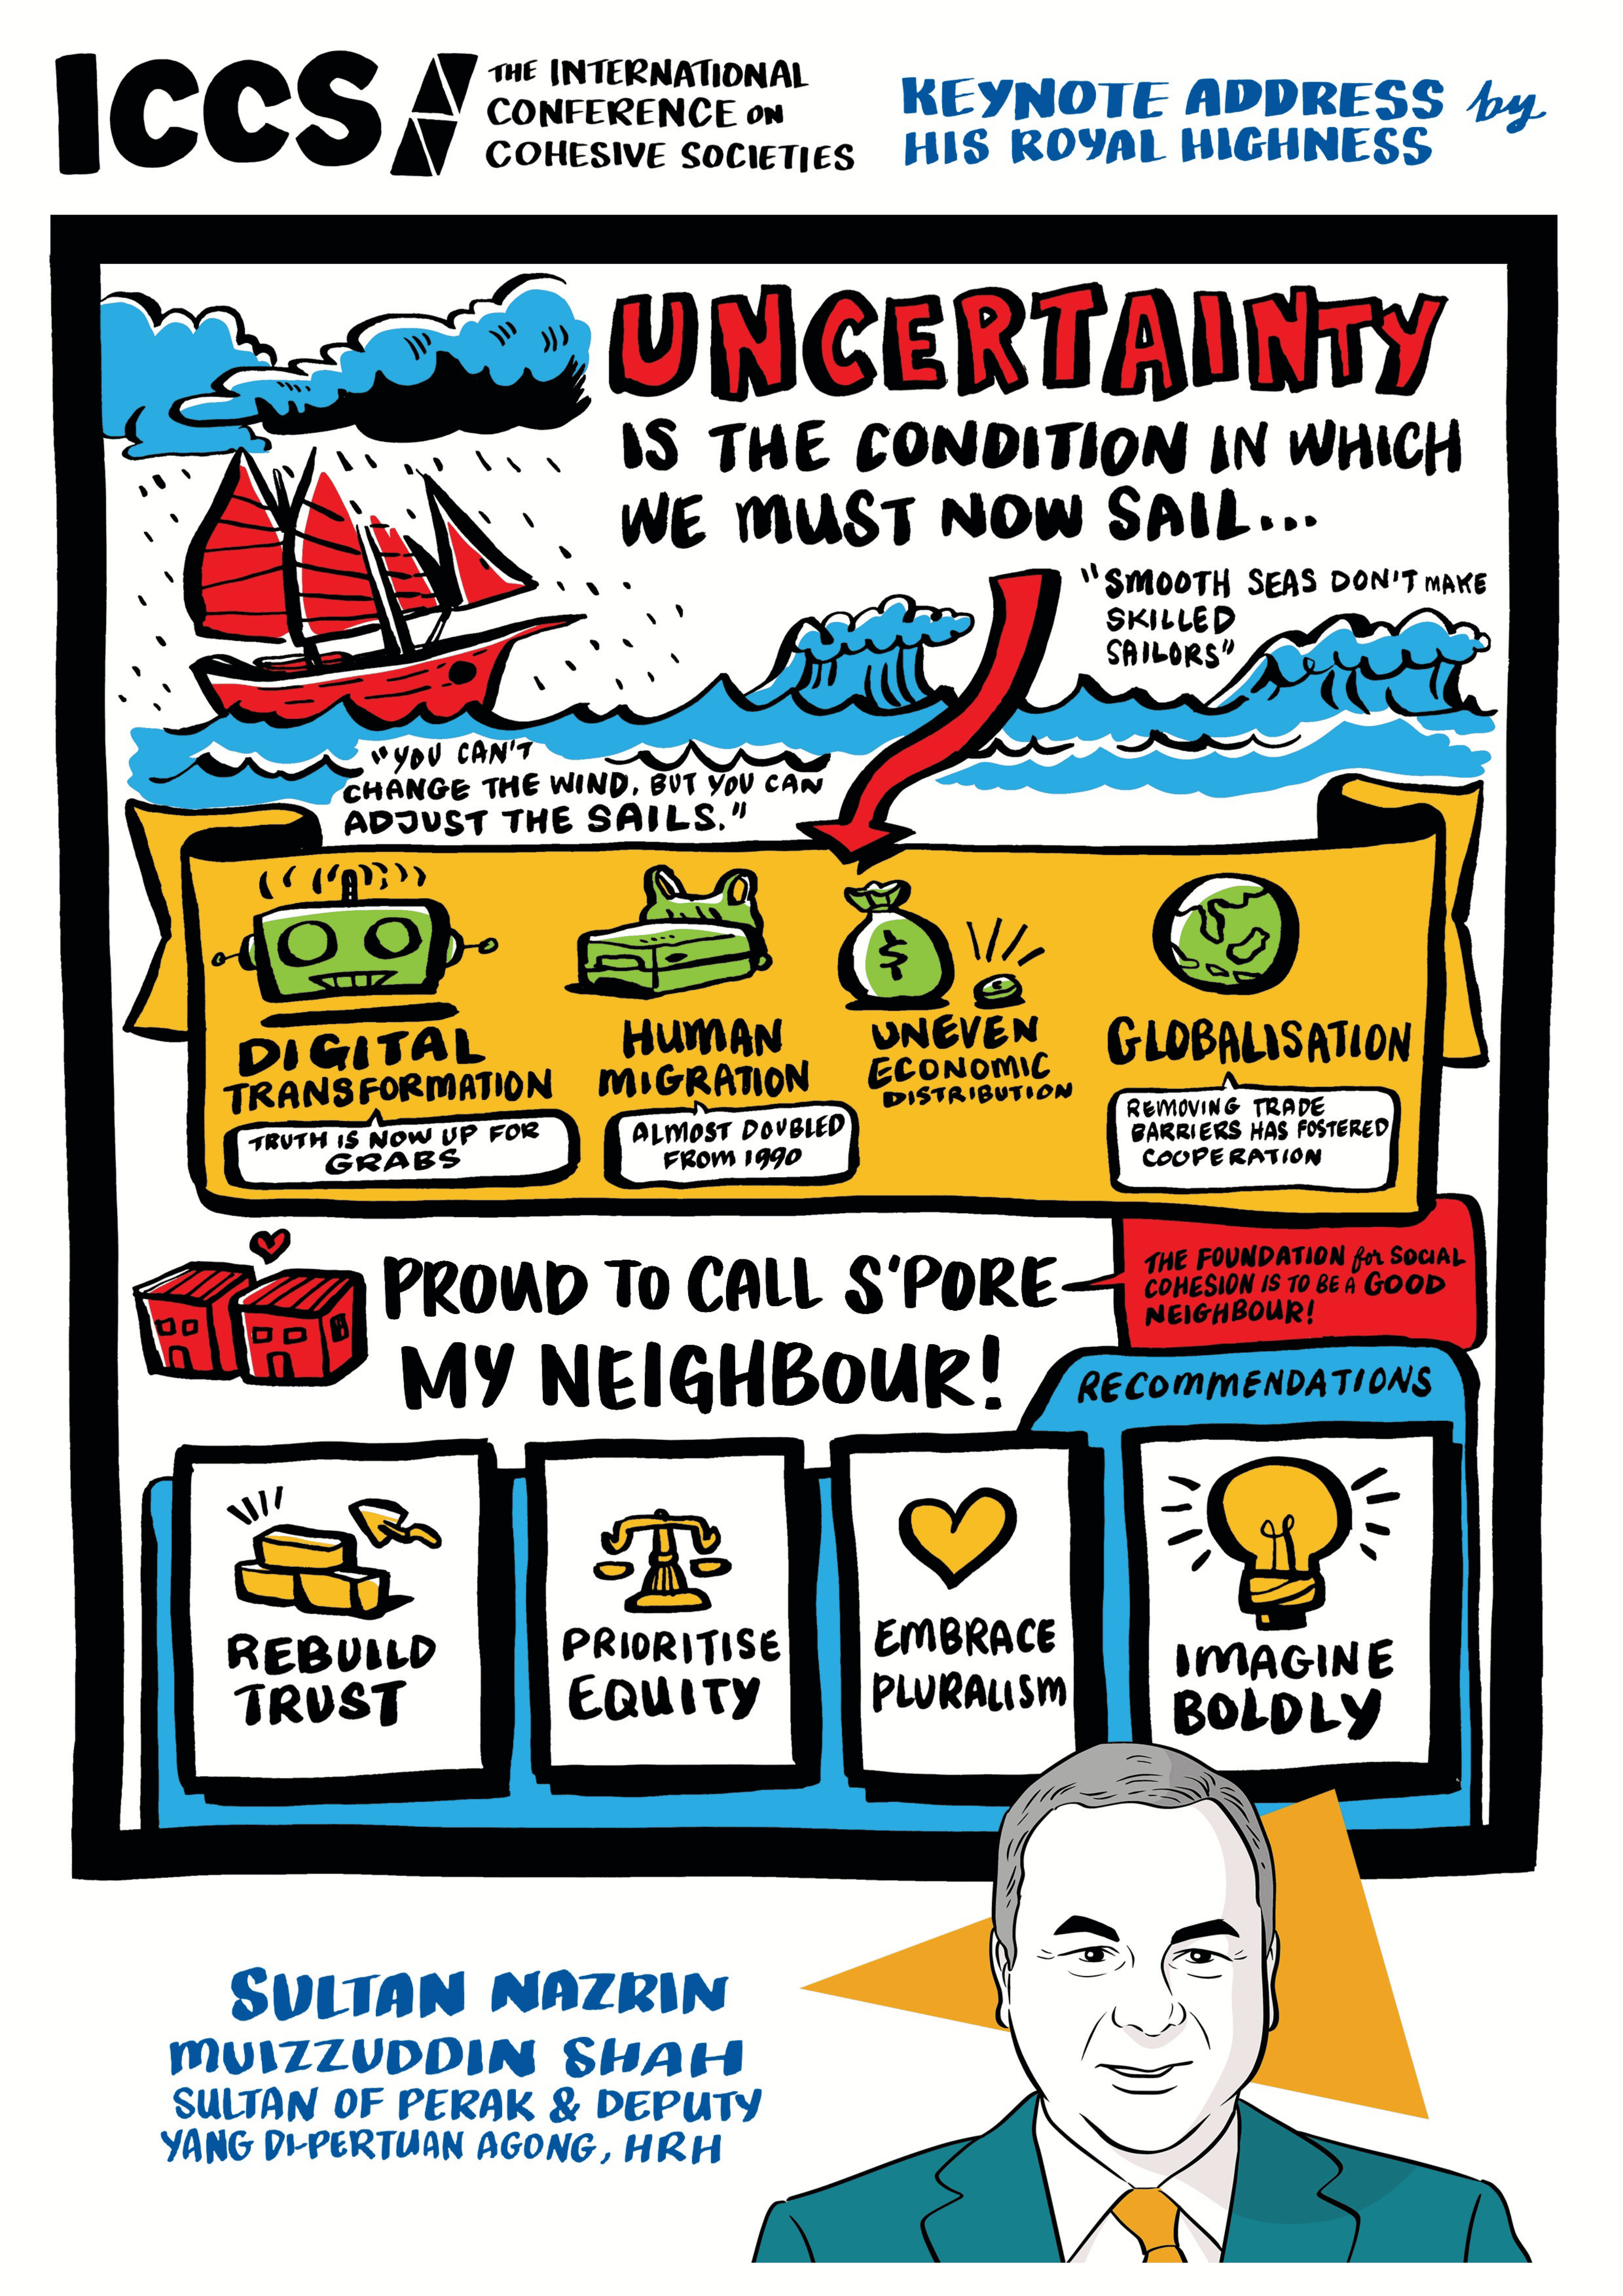 ICCS
THE INTERNATIONAL
CONFERENCE ON
COHESIVE SOCIETIES
KEYNOTE ADDRESS by
HIS ROYAL HIGHNESS
UNCERTAINTY
IS THE CONDITION IN WHICH
WE MUST NOW SAIL...
"SMOOTH SEAS DON'T MAKE
SKILLED
SAILORS"
"YOU CAN'T
CHANGE THE WIND, BUT YOU CAN
ADJUST THE SAILS."
DIGITAL
TRANSFORMATION
TRUTH IS NOW UP FOR
GRABS
HUMAN
MIGRATION
ALMOST DOUBLED
FROM 1990
$
UNEVEN
ECONOMIC
DISTRIBUTION
GLOBALISATION
REMOVING TRADE
BARRIERS HAS FOSTERED
COOPERATION
PROUD TO CALL S'PORE
MY NEIGHBOUR!
THE FOUNDATION for SOCIAL
COHESION IS TO BE A GOOD
NEIGHBOUR!
RECOMMENDATIONS
REBUILD
TRUST
PRIORITISE
EQUITY
EMBRACE
PLURALISM
IMAGINE
BOLDLY
SULTAN NAZRIN
MUIZZUDDIN SHAH
SULTAN OF PERAK & DEPUTY
YANG DI-PERTUAN AGONG, HRH